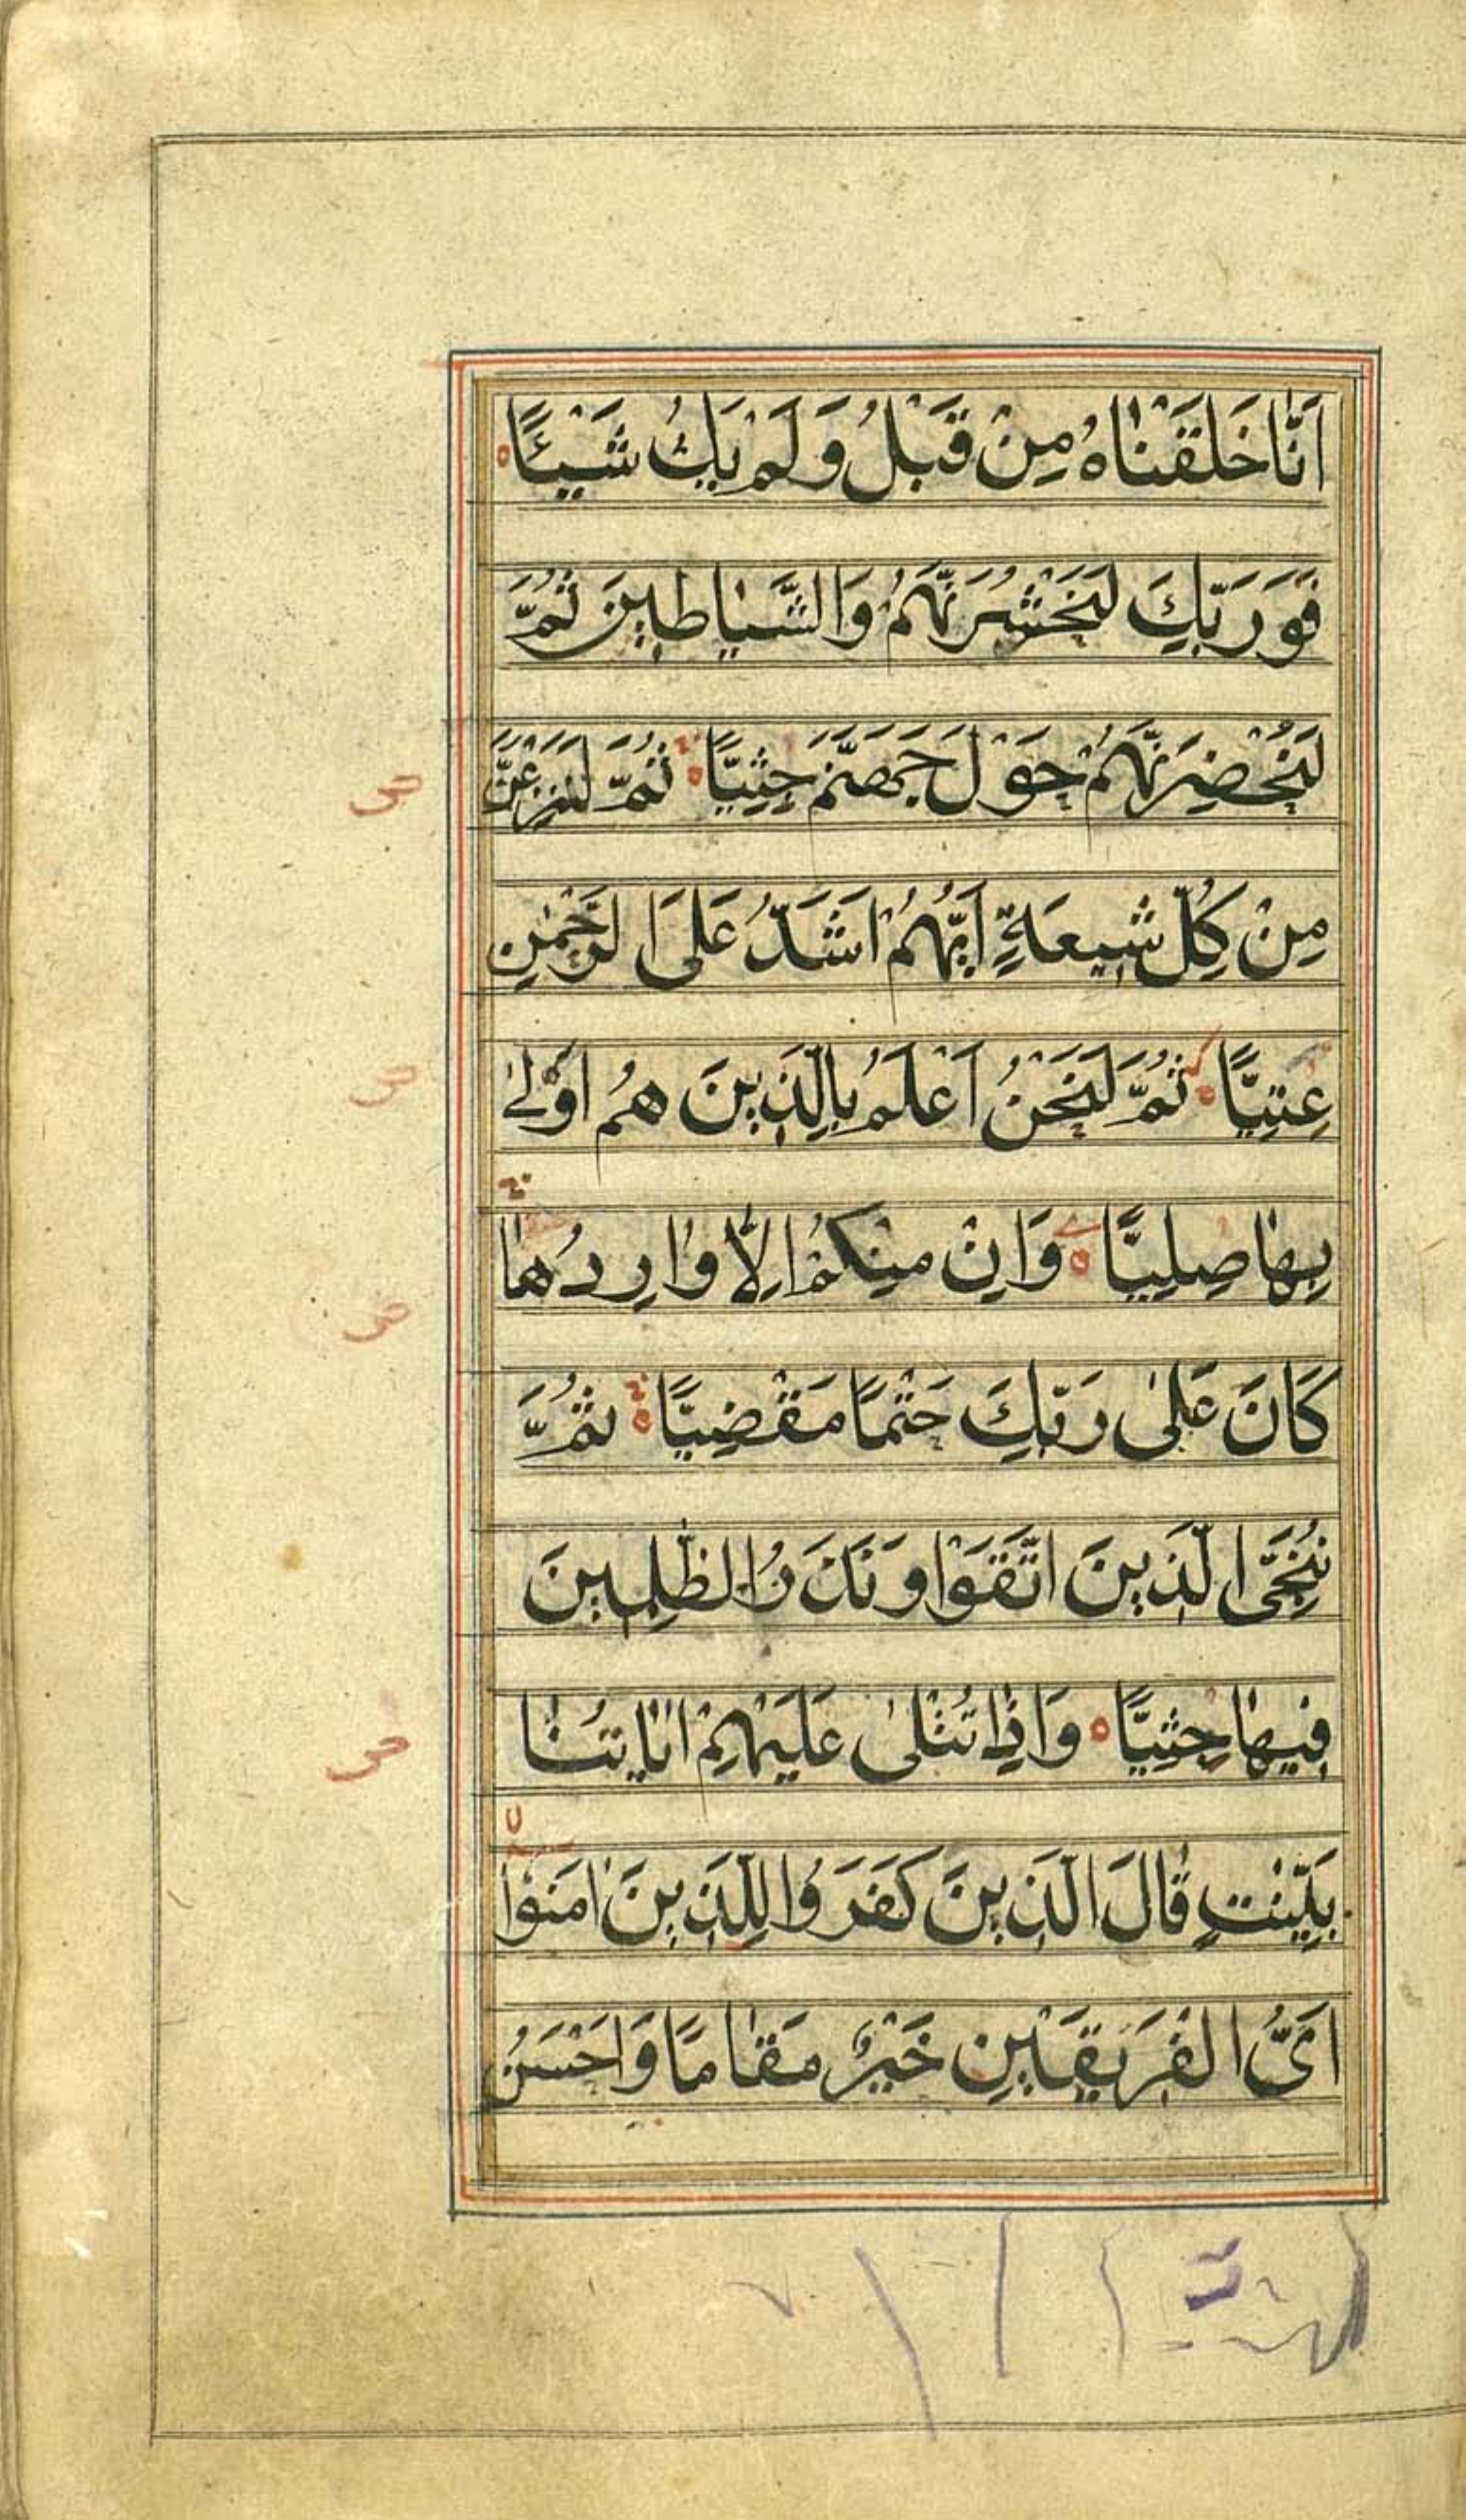 اَنَّا خَلَقْنَاهُ مِنْ قَبْلُ وَلَمْ يَكُ شَيْئًا
فَوَرَبِّكَ لَنَحْشُرَنَّهُمْ وَالشَّيَاطِينَ ثُمَّ
لَنُحْضِرَنَّهُمْ حَوْلَ جَهَنَّمَ جِثِيًّا ثُمَّ لَنَنْزِعَنَّ
مِنْ كُلِّ شِيعَةٍ اَيُّهُمْ اَشَدُّ عَلَى الرَّحْمٰنِ
عِتِيًّا ثُمَّ لَنَحْنُ اَعْلَمُ بِالَّذِينَ هُمْ اَوْلٰى
بِهَا صِلِيًّا وَاِنْ مِنْكُمْ اِلَّا وَارِدُهَا
كَانَ عَلٰى رَبِّكَ حَتْمًا مَقْضِيًّا ثُمَّ
نُنَجِّى الَّذِينَ اتَّقَوْا وَنَذَرُ الظّٰلِمِينَ
فِيهَا جِثِيًّا وَاِذَا تُتْلٰى عَلَيْهِمْ اٰيَاتُنَا
بَيِّنٰتٍ قَالَ الَّذِينَ كَفَرُوا لِلَّذِينَ اٰمَنُوْا
اَىُّ الْفَرِيقَيْنِ خَيْرٌ مَقَامًا وَاَحْسَنُ